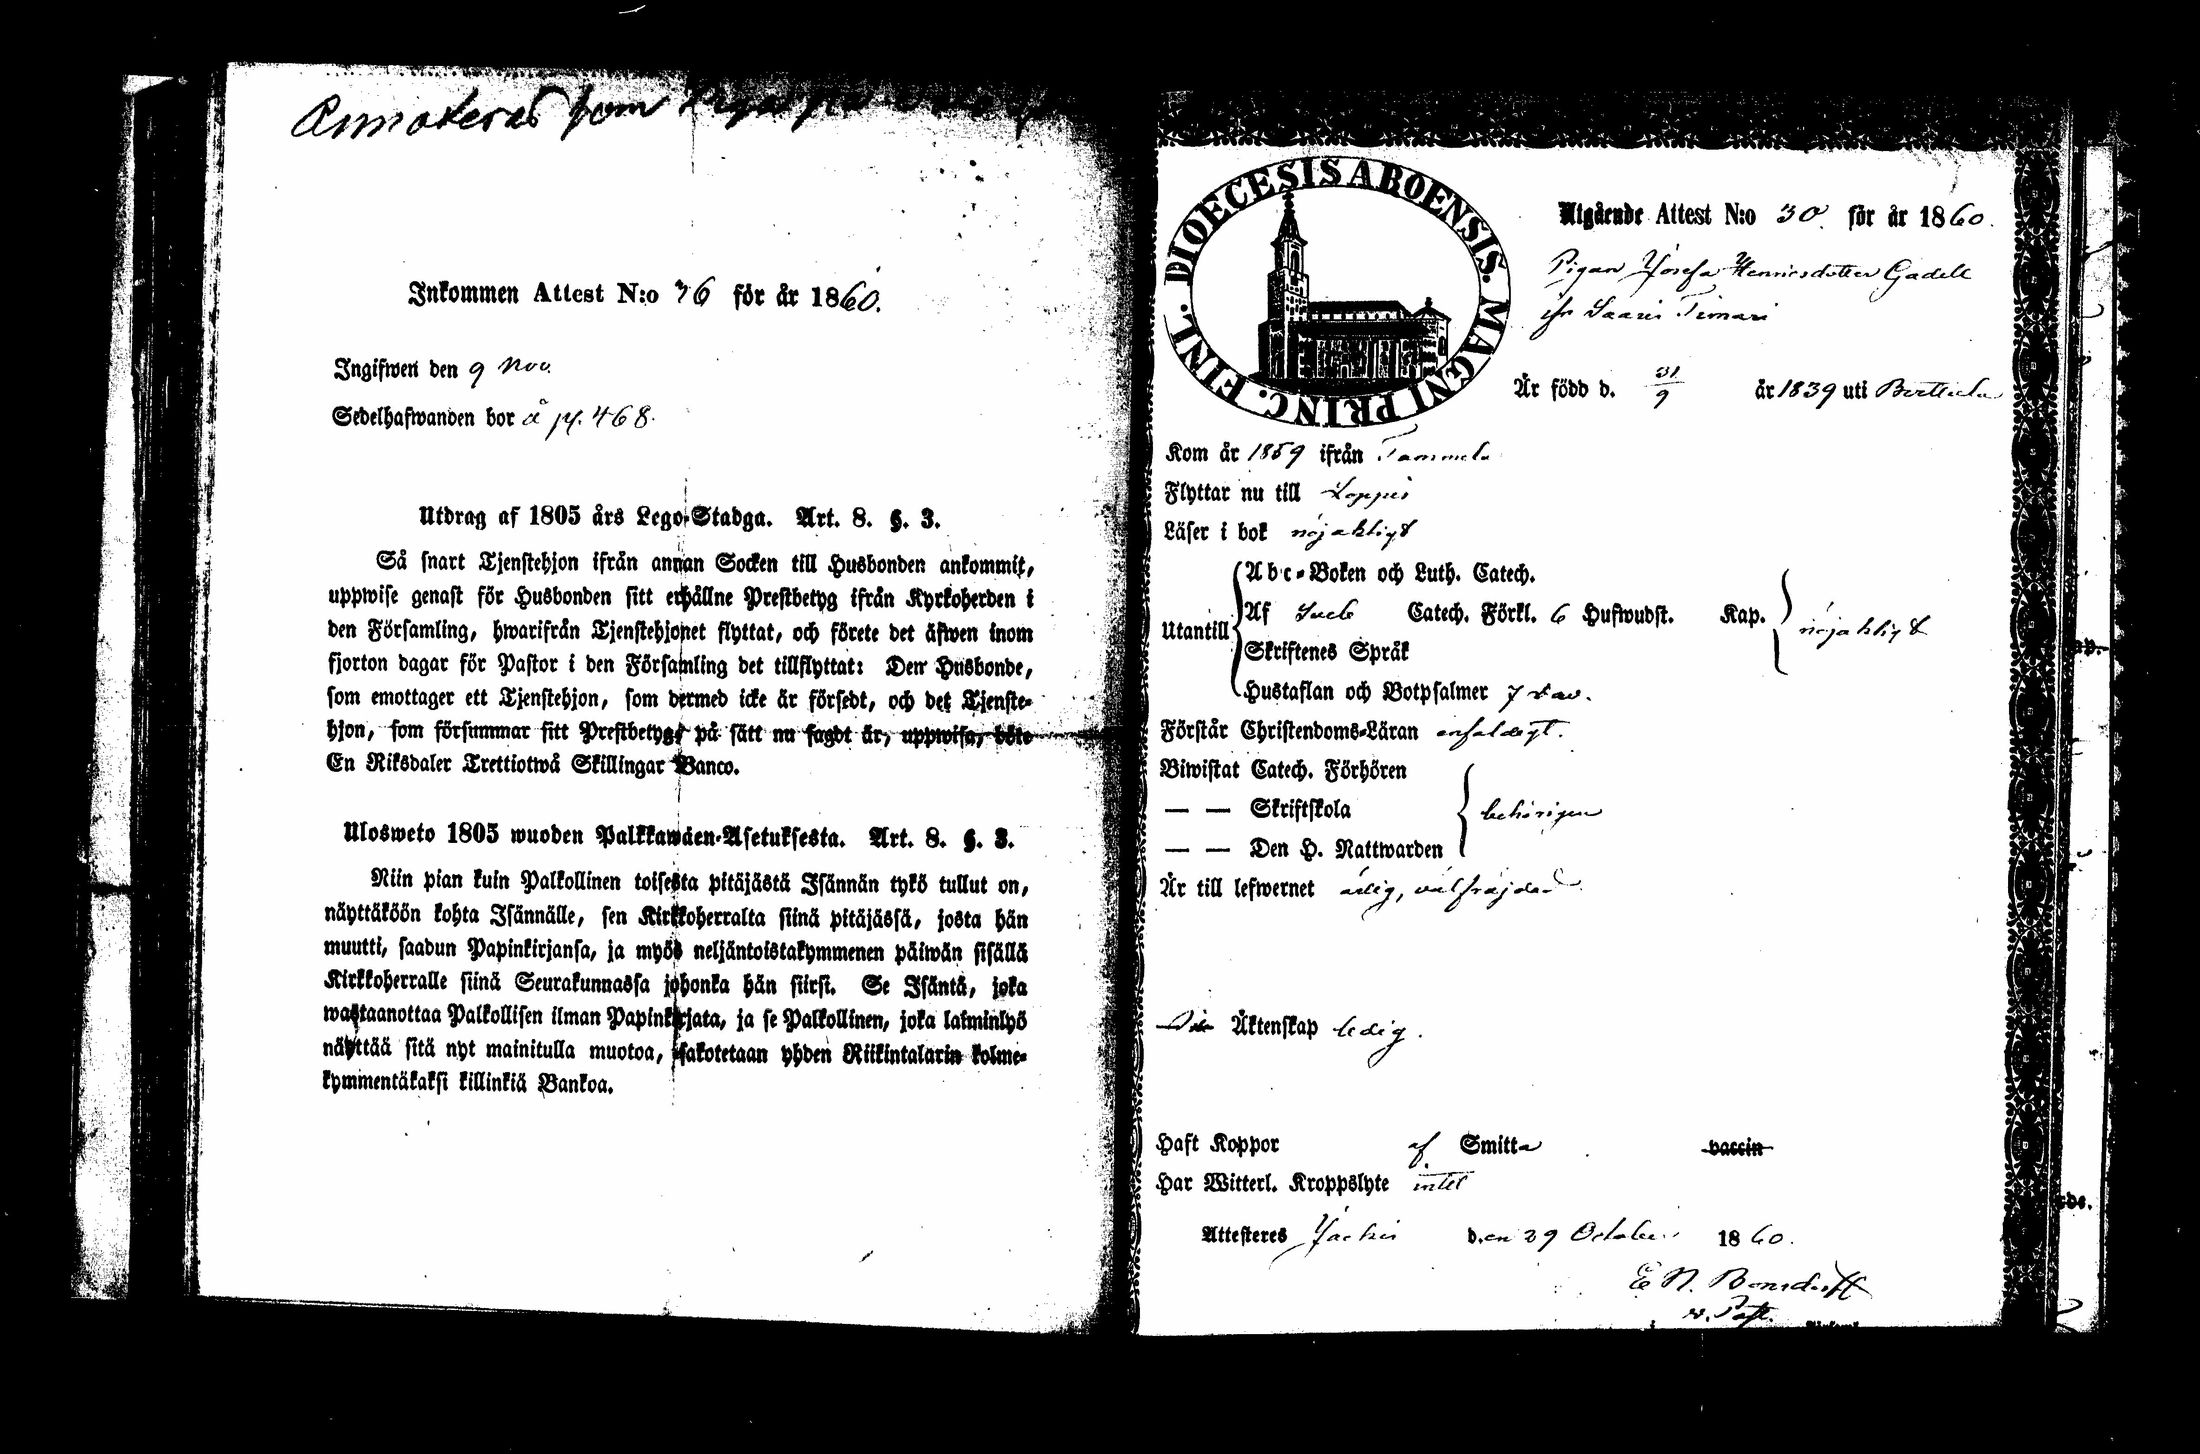 Annoteras som
Inkommen Attest N:o 76 för år 1860.
Ingifwen den 9 Nov.
Sedelhafwanden bor å p. 468.
Utdrag af 1805 års Lego-Stadga. Art. 8. §. 3.
Så snart Tjenstehjon ifrån annan Socken till Husbonden ankommit,
uppwise genast för Husbonden sitt erhållne Prestbetyg ifrån Kyrkoherden i
den Församling, hwarifrån Tjenstehjonet flyttat, och förete det äfwen inom
fjorton dagar för Pastor i den Församling det tillflyttat: Den Husbonde,
som emottager ett Tjenstehjon, som dermed icke är försedt, och det Tjenste-
hjon, som försummar sitt Prestbetyg, på sätt nu sagdt är, uppwisa, böte
En Riksdaler Trettiotwå Skillingar Banco.
Ulosweto 1805 wuoden Palkkawäen-Asetuksesta. Art. 8. §. 3.
Niin pian kuin Palkollinen toisesta pitäjästä Isännän tykö tullut on,
näyttäköön kohta Isännälle, sen Kirkkoherralta siinä pitäjässä, josta hän
muutti, saadun Papinkirjansa, ja myös neljäntoistakymmenen päiwän sisällä
Kirkkoherralle siinä Seurakunnassa johonka hän siirsi. Se Isäntä, joka
wastaanottaa Palkollisen ilman Papinkirjata, ja se Palkollinen, joka laiminlyö
näyttää sitä nyt mainitulla muotoa, sakotetaan yhden Riikintalarin kolme-
kymmentäkaksi killinkiä Bankoa.
DIOECESIS ABOENSIS. MAGNI PRINC. FINL.
Utgående Attest N:o 30 för år 1860.
Pigan Josefa Henricsdotter Gadell
ifr Saari Timari
Är född d. 31/9 år 1839 uti Berttula
Kom år 1859 ifrån Tammela
Flyttar nu till Loppis
Läser i bok nöjaktigt
Abc-Boken och Luth. Catech.
Utantill Af Sveb Catech. Förkl. 6 Hufwudst. Kap. nöjaktigt
Skriftenes Språk
Hustaflan och Botpsalmer 7 dav.
Förstår Christendoms-Läran enfaldigt.
Biwistat Catech. Förhören
— — Skriftskola behörigen
— — Den H. Nattwarden
Är till lefwernet ärlig, välfräjdad
Äktenskap ledig.
Haft Koppor af Smitta vaccin
Har Witterl. Kroppslyte intet
Attesteres Jockis den 29 October 1860.
E N. Bonsdorff
v. Past.